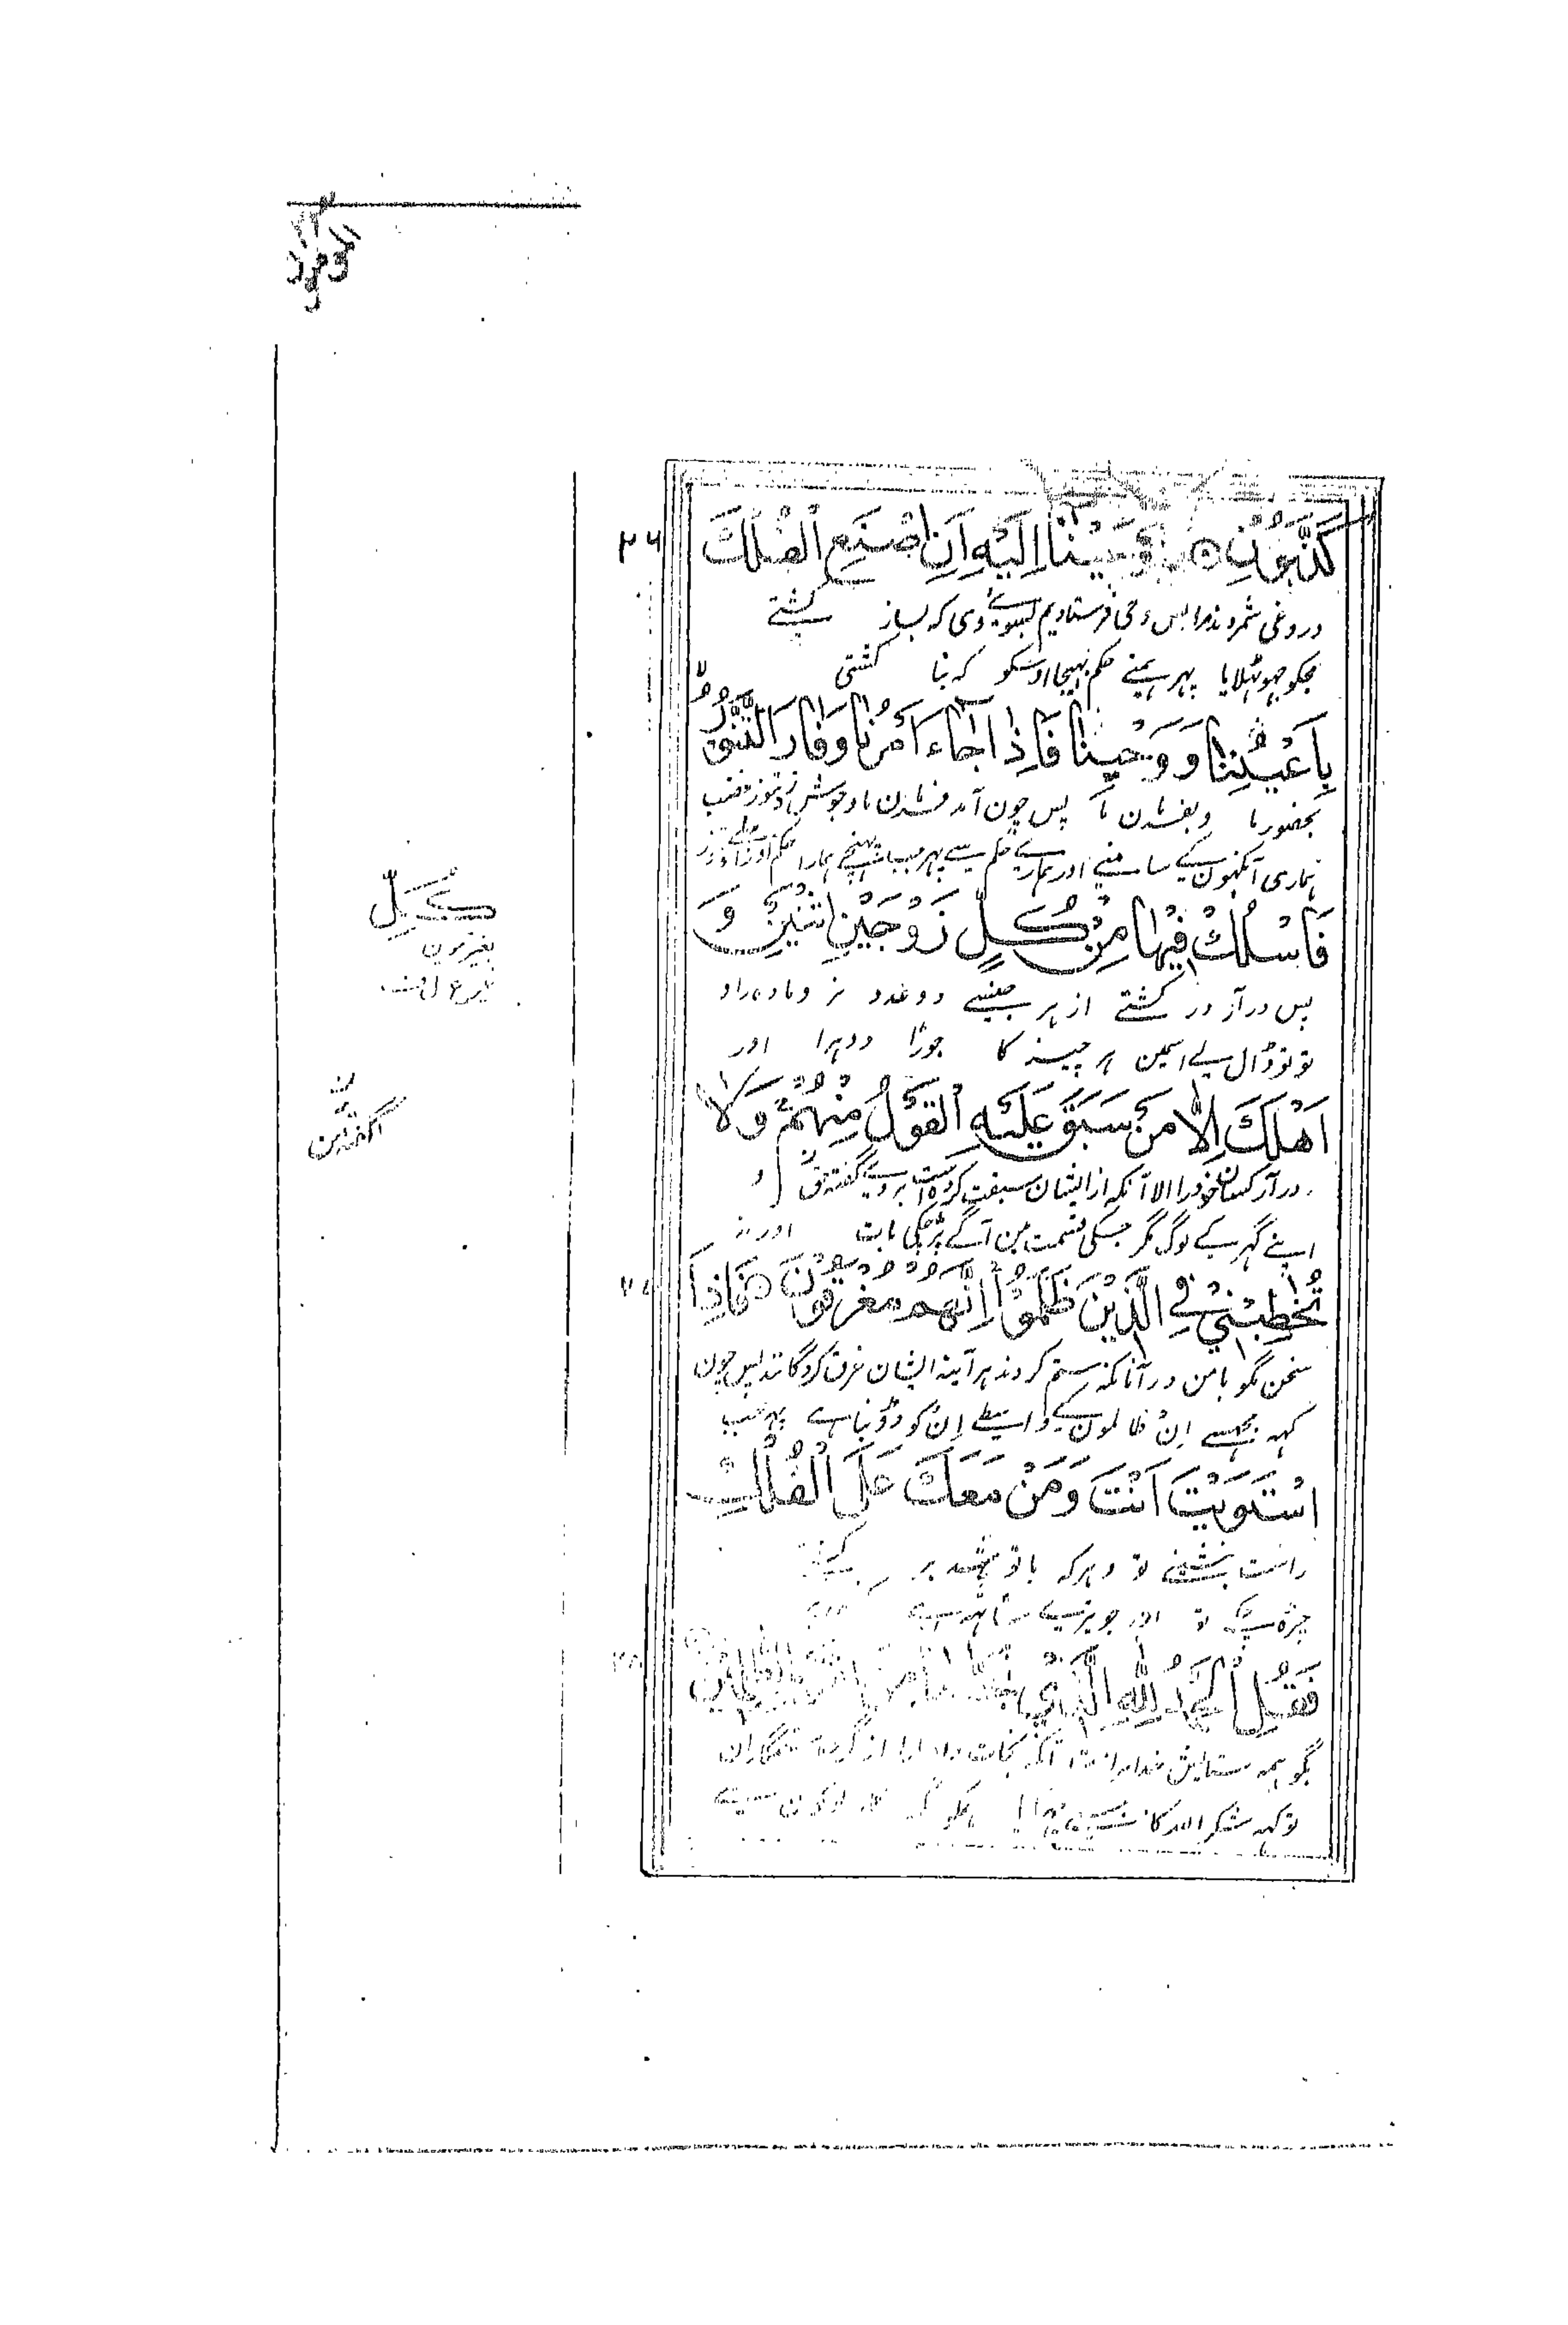 المومنون
كَذَّبُوْنِ ۞ فَاَوْحَيْنَا اِلَيْهِ اَنِ اصْنَعِ الْفُلْكَ
۲۶
دروغی شمردند مرا پس وحی فرستادیم بسوی وی که بساز کشتے
مجکو جھوٹھلایا پہر ہمنے حکم بھیجا اوسکو کہ بنا کشتی
بِاَعْيُنِنَا وَ وَحْيِنَا فَاِذَا جَآءَ اَمْرُنَا وَفَارَ التَّنُّوْرُ
بحضور ما و بفرمان ما پس چون آمد فرمان ما و بجوشد تنور
ہماری آنکہون کے سامنے اور ہمارے حکم سے پہر جب پہنچے ہمارا حکم اور
فَاسْلُكْ فِيْهَا مِنْ كُلٍّ زَوْجَيْنِ اثْنَيْنِ وَ
پس درآر در کشتے از ہر جنسے دو عدد نر و ماده را و
تو تو ڈال لے اسمین ہر چیز کا جوڑا دوہرا اور
اَهْلَكَ اِلَّا مَنْ سَبَقَ عَلَيْهِ الْقَوْلُ مِنْهُمْ وَلَا
درآر کسان خود را الا آنکہ از ایشان سبقت کرده است بروے گفتہ و
اپنے گہر کے لوگ مگر جسکی قسمت مین آگے پڑچکی بات اور نہ
تُخَاطِبْنِيْ فِي الَّذِيْنَ ظَلَمُوْا اِنَّهُمْ مُغْرَقُوْنَ ۞ فَاِذَا
۲۷
سخن مگو با من در آنانکہ ستم کردند ہر آینہ ایشان غرق کردگانند پس چون
کہہ مجہسے ان ظالمون کے واسطے ان کو ڈوبنا ہے پہر جب
اسْتَوَيْتَ اَنْتَ وَمَنْ مَعَكَ عَلَى الْفُلْكِ
راست بنشینے تو و ہرکہ با تو باشد بر
چڑہ چکے تو اور جو تیرے ساتہہ ہے
فَقُلِ الْحَمْدُ لِلّٰهِ الَّذِيْ نَجّٰنَا مِنَ الْقَوْمِ الظّٰلِمِيْنَ
۲۸
بگو ہمہ ستایش خدایراست آنکہ نجات داد ما را از گروه ستمگاران
تو کہہ شکر اللہ کا
كُلٍّ
بغیر تنوین